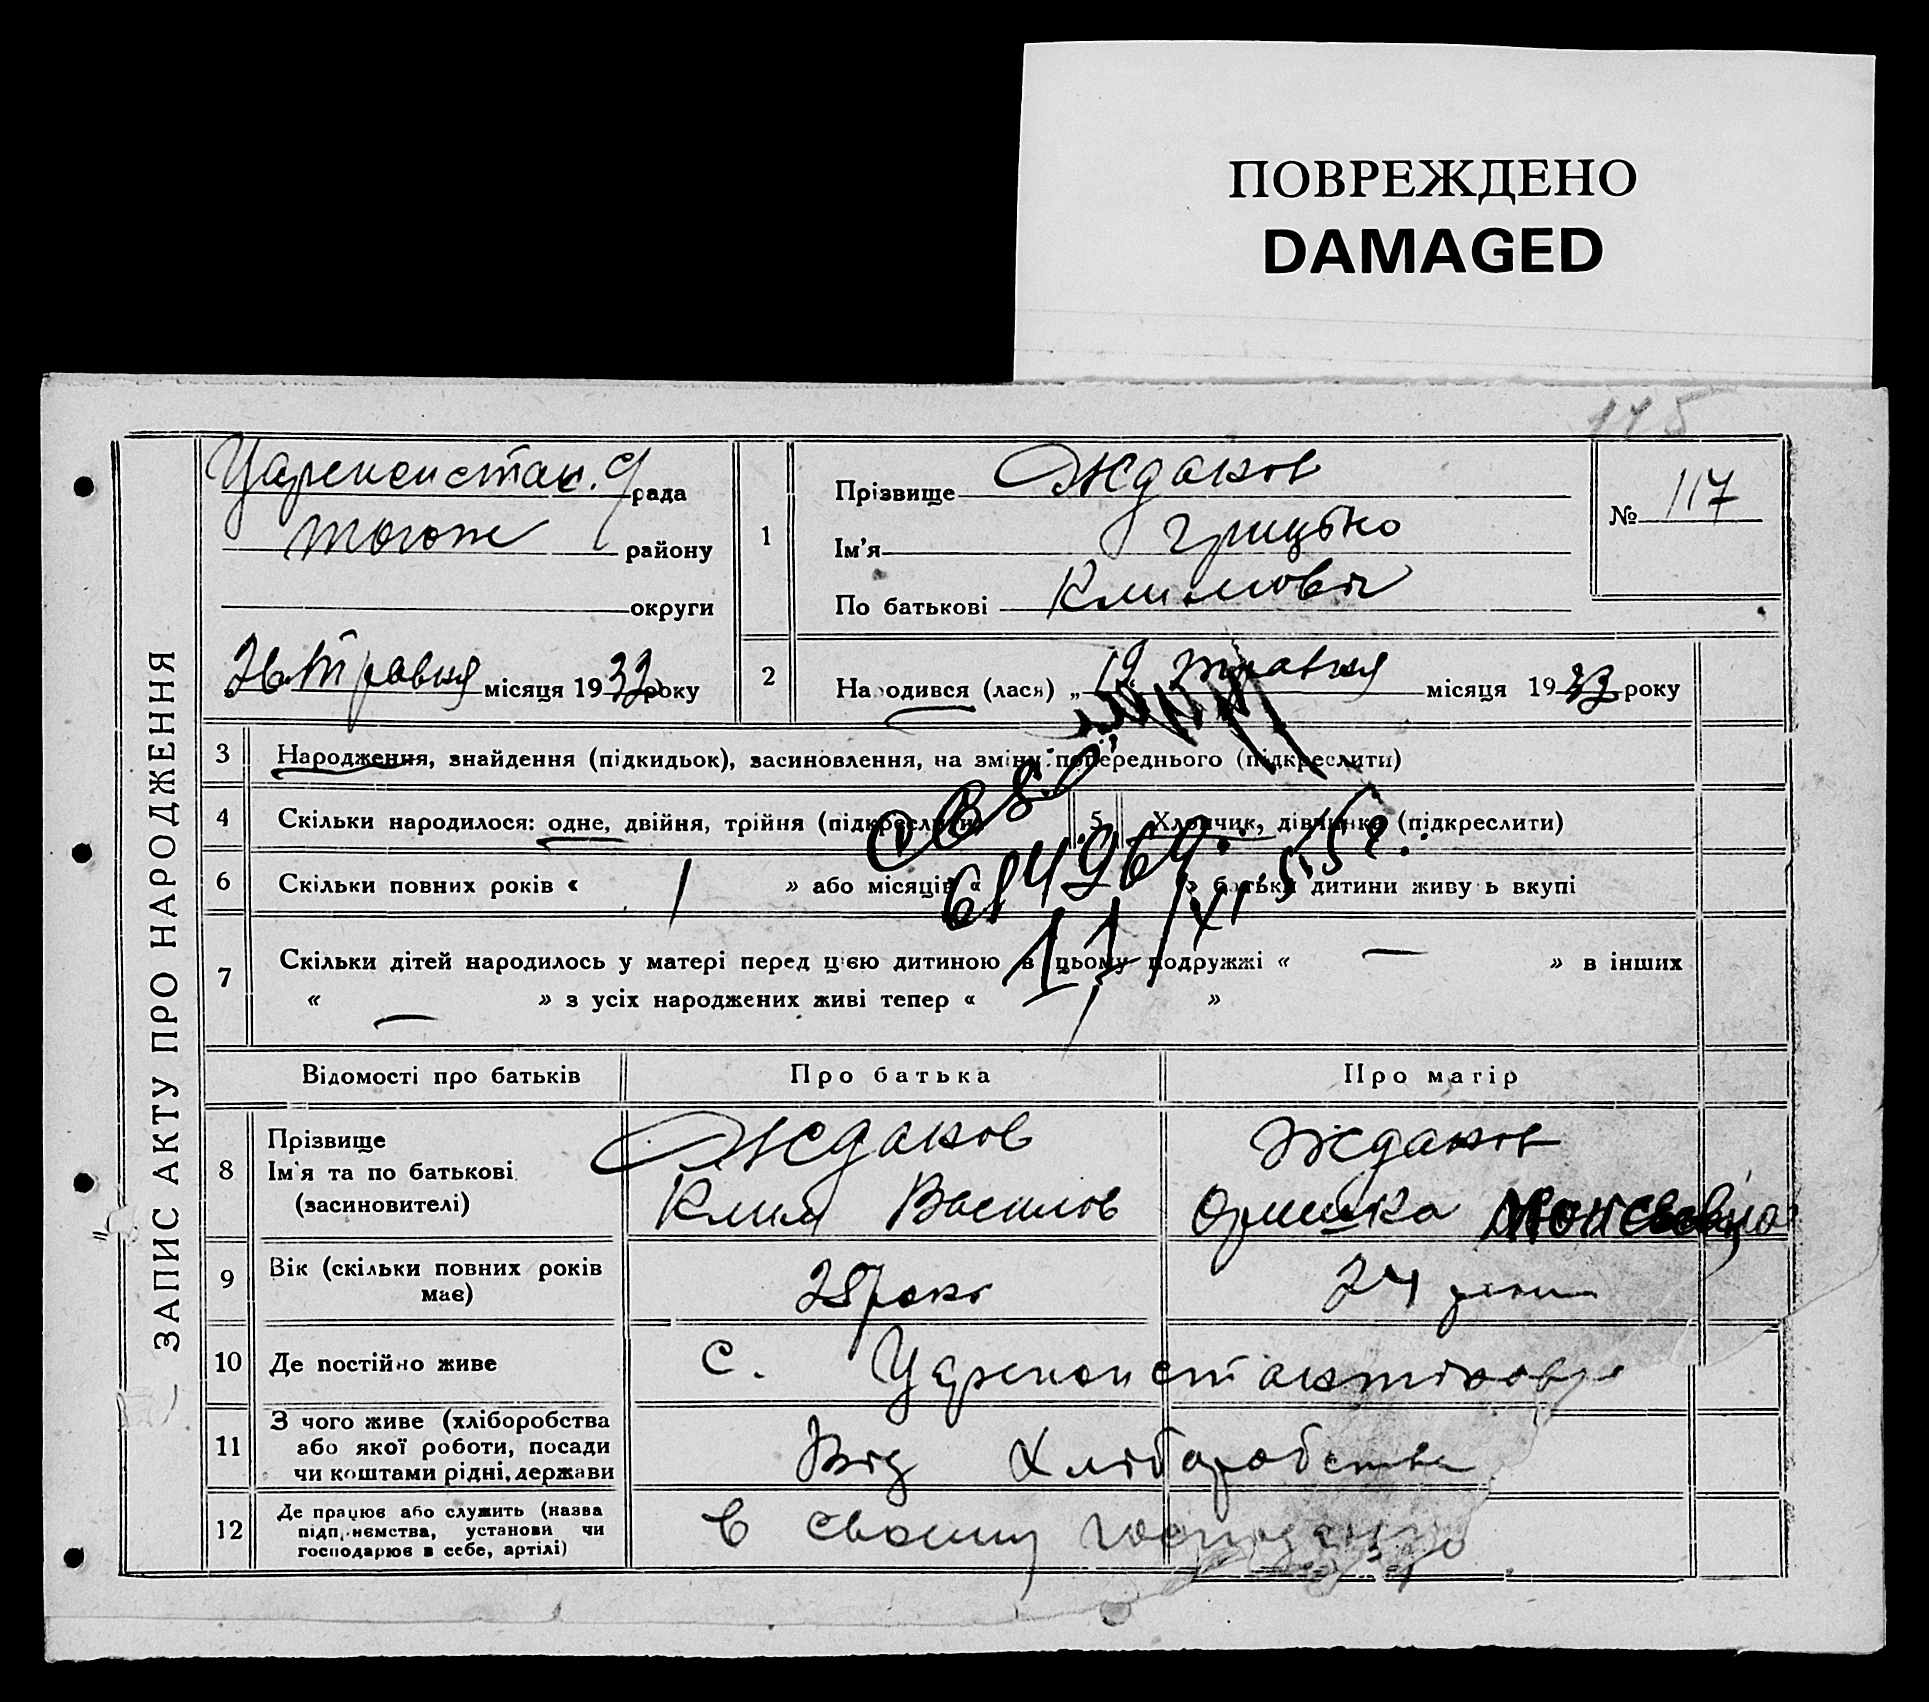 ПОВРЕЖДЕНО
DAMAGED
115
ЗАПИС АКТУ ПРО НАРОДЖЕННЯ
Царекоистан. с/рада
тогож району
округи
26 Травня місяця 1933 року
1
Прізвище Ждаков
Ім'я Грицько
По батькові Климовіч
№ 117
2
Народився (лася) „19 травня місяця 1933 року
3 Народження, знайдення (підкидьок), засиновлення, на зміну попереднього (підкреслити)
4 Скільки народилося: одне, двійня, трійня (підкреслити) 5 Хлопчик, дівчинка (підкреслити)
6 Скільки повних років « 1 » або місяців « » батьки дитини живуть вкупі
7 Скільки дітей народилось у матері перед цією дитиною в цьому подружжі « — » в інших
« — » з усіх народжених живі тепер « 1 »
11/XI-55г.
Відомості про батьків Про батька Про матір
8 Прізвище
Ім'я та по батькові
(засиновителі)
Ждаков
Клим Васильов
Ждаков
9 Вік (скільки повних років
має)
28 рокі
24 роки
10 Де постійно живе
с.
11 З чого живе (хліборобства
або якої роботи, посади
чи коштами рідні, держави
Від Хліборобства
12 Де працює або служить (назва
підприємства, установи чи
господарює в себе, артілі)
в своєму